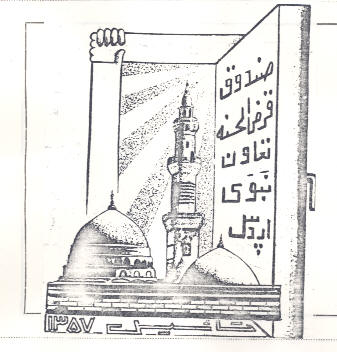 صندوق
قرض الحسنه
تعاون
نبوی
اردل
تاسیس ۱۳۵۷